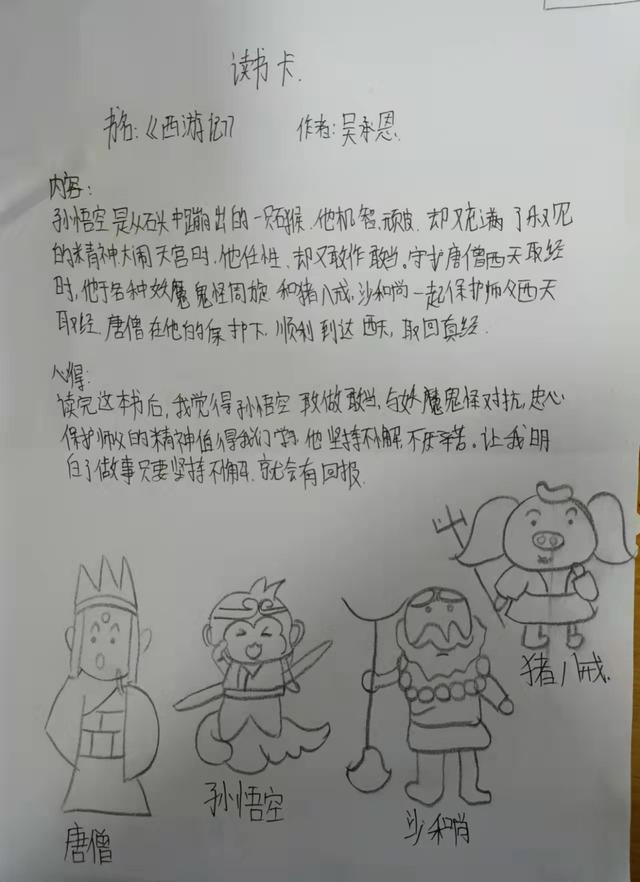 读书卡.
书名:《西游记》 作者:吴承恩.
内容:
孙悟空是从石头中蹦出的一只石猴.他机智、顽皮.却又充满了叔见
的精神.大闹天宫时.他任性、却又敢作敢当。守护唐僧西天取经
时,他于各种妖魔鬼怪周旋.和猪八戒,沙和尚一起保护师父西天
取经.唐僧在他的保护下.顺利到达西天,取回真经.
心得:
读完这本书后,我觉得孙悟空敢做敢当,与妖魔鬼怪对抗,忠心
保护师父的精神值得我们学习.他坚持不懈.不厌辛苦。让我明
白了做事只要坚持不懈.就会有回报.
猪八戒.
孙悟空
沙和尚
唐僧